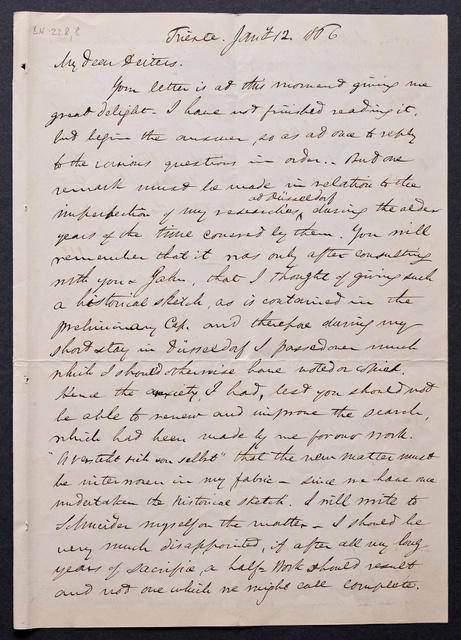 LN 228,8
Trieste. Jany 12. 1866
My dear Deiters.
Your letter is at this moment giving me
great delight - I have not finished reading it,
but begin the answer, so as at once to reply
to the various questions in order. - But one
remark must be made in relation to the
at Düsseldorf
imperfection of my researches, during the older
years of the time covered by them. You will
remember that it was only after consulting
with you & Jahn, that I thought of giving such
a historical sketch, as is contained in the
preliminary Cap. and therefore during my
short stay in Düsseldorf I passed over much
which I should otherwise have noted or copied.
Hence the anxiety, I had, lest you should not
be able to renew and improve the search,
which had been made by me for our work.
"Versteht sich von selbst" that the new matter must
be interwoven in my fabric - since we have once
undertaken the historical sketch. I will write to
Schneider myself on the matter - I should be
very much disappointed, if after all my long
years of sacrifice, a half-Work should result
and not one which we might call complete.